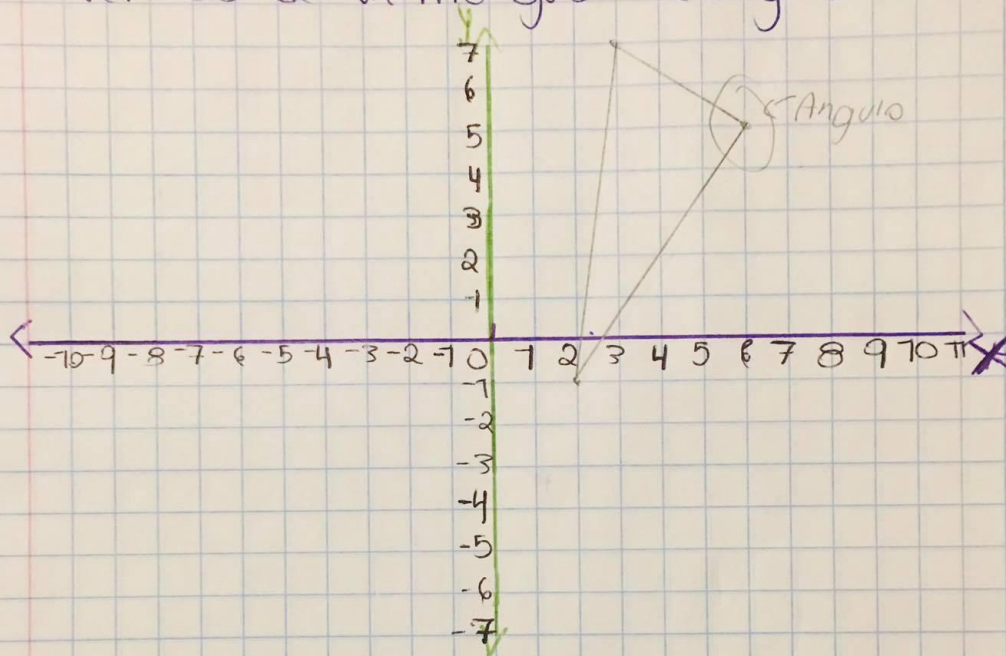 Y
7
6
5
Angulo
4
3
2
1
-10 -9 -8 -7 -6 -5 -4 -3 -2 -1 0 1 2 3 4 5 6 7 8 9 10 11 X
-1
-2
-3
-4
-5
-6
-7